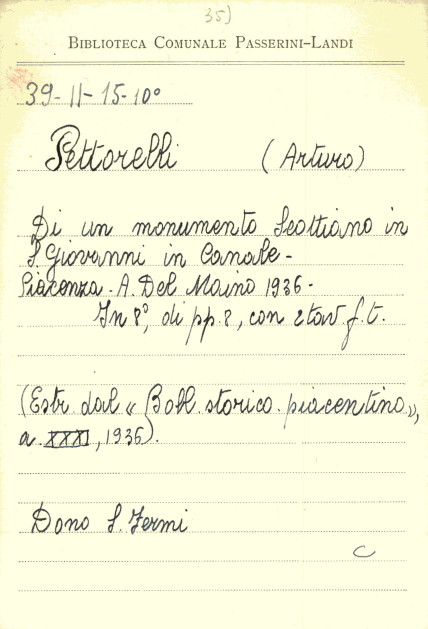 35)
BIBLIOTECA COMUNALE PASSERINI-LANDI
39-II-15-10°
Pettorelli (Arturo)
Di un monumento Scottiano in
S. Giovanni in Canale-
Piacenza. A. Del Maino 1936-
In 8°, di pp. 8, con 2 tav. f. t.
(Estr. dal « Boll. storico. piacentino »,
a. XXXI, 1936).
Dono S. Fermi
C